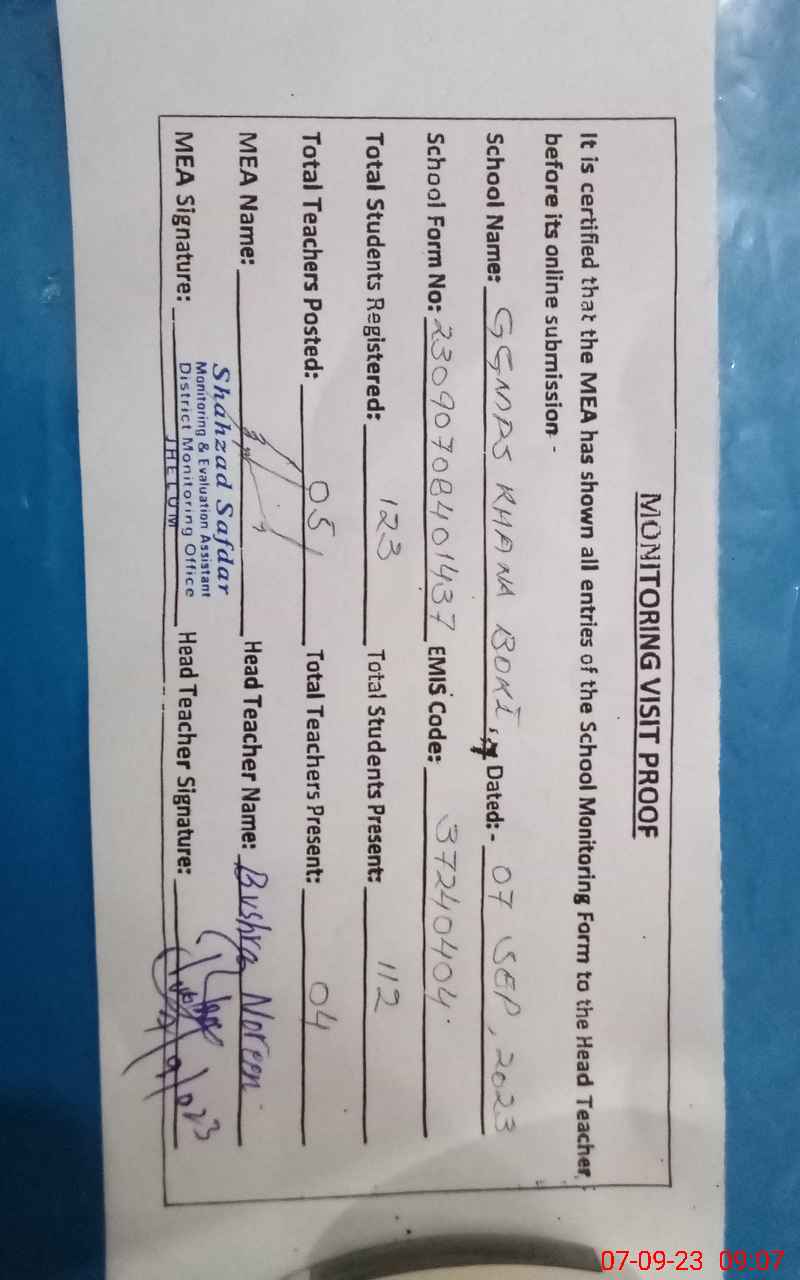 MONITORING VISIT PROOF
It is certified that the MEA has shown all entries of the School Monitoring Form to the Head Teacher,
before its online submission -
School Name: GGMPS KHANA BOKI, Dated: - 07 SEP, 2023
School Form No: 23090708401437 EMIS Code: 37240404
Total Students Registered: 123 Total Students Present: 112
Total Teachers Posted: 05 Total Teachers Present: 04
MEA Name: Head Teacher Name: Bushra Noreen
MEA Signature: Head Teacher Signature:
Shahzad Safdar
Monitoring & Evaluation Assistant
District Monitoring Office
JHELUM
07-09-23 09:07